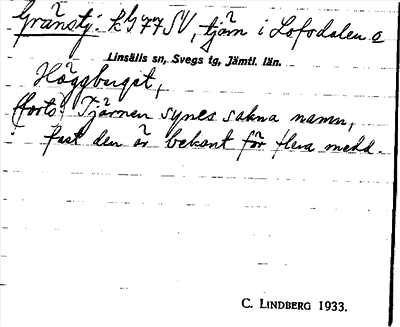 Gränstj. k G 77 SV, tjärn i Lofsdalen o
Linsälls sn, Svegs tg, Jämtl. län.
Höggberget,
(forts.) Tjärnen synes sakna namn,
fast den är bekant för flera medd.
C. LINDBERG 1933.